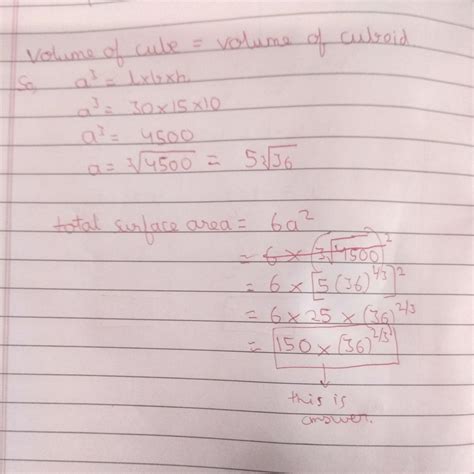 Volume of cube = volume of cuboid
So, a³ = l×b×h
a³ = 30×15×10
a³ = 4500
a = ³√4500 = 5³√36
total surface area = 6a²
= 6 × (³√4500)²
= 6 × [5(36)^1/3]²
= 6 × 25 × (36)^2/3
= 150 × (36)^2/3
this is
answer.